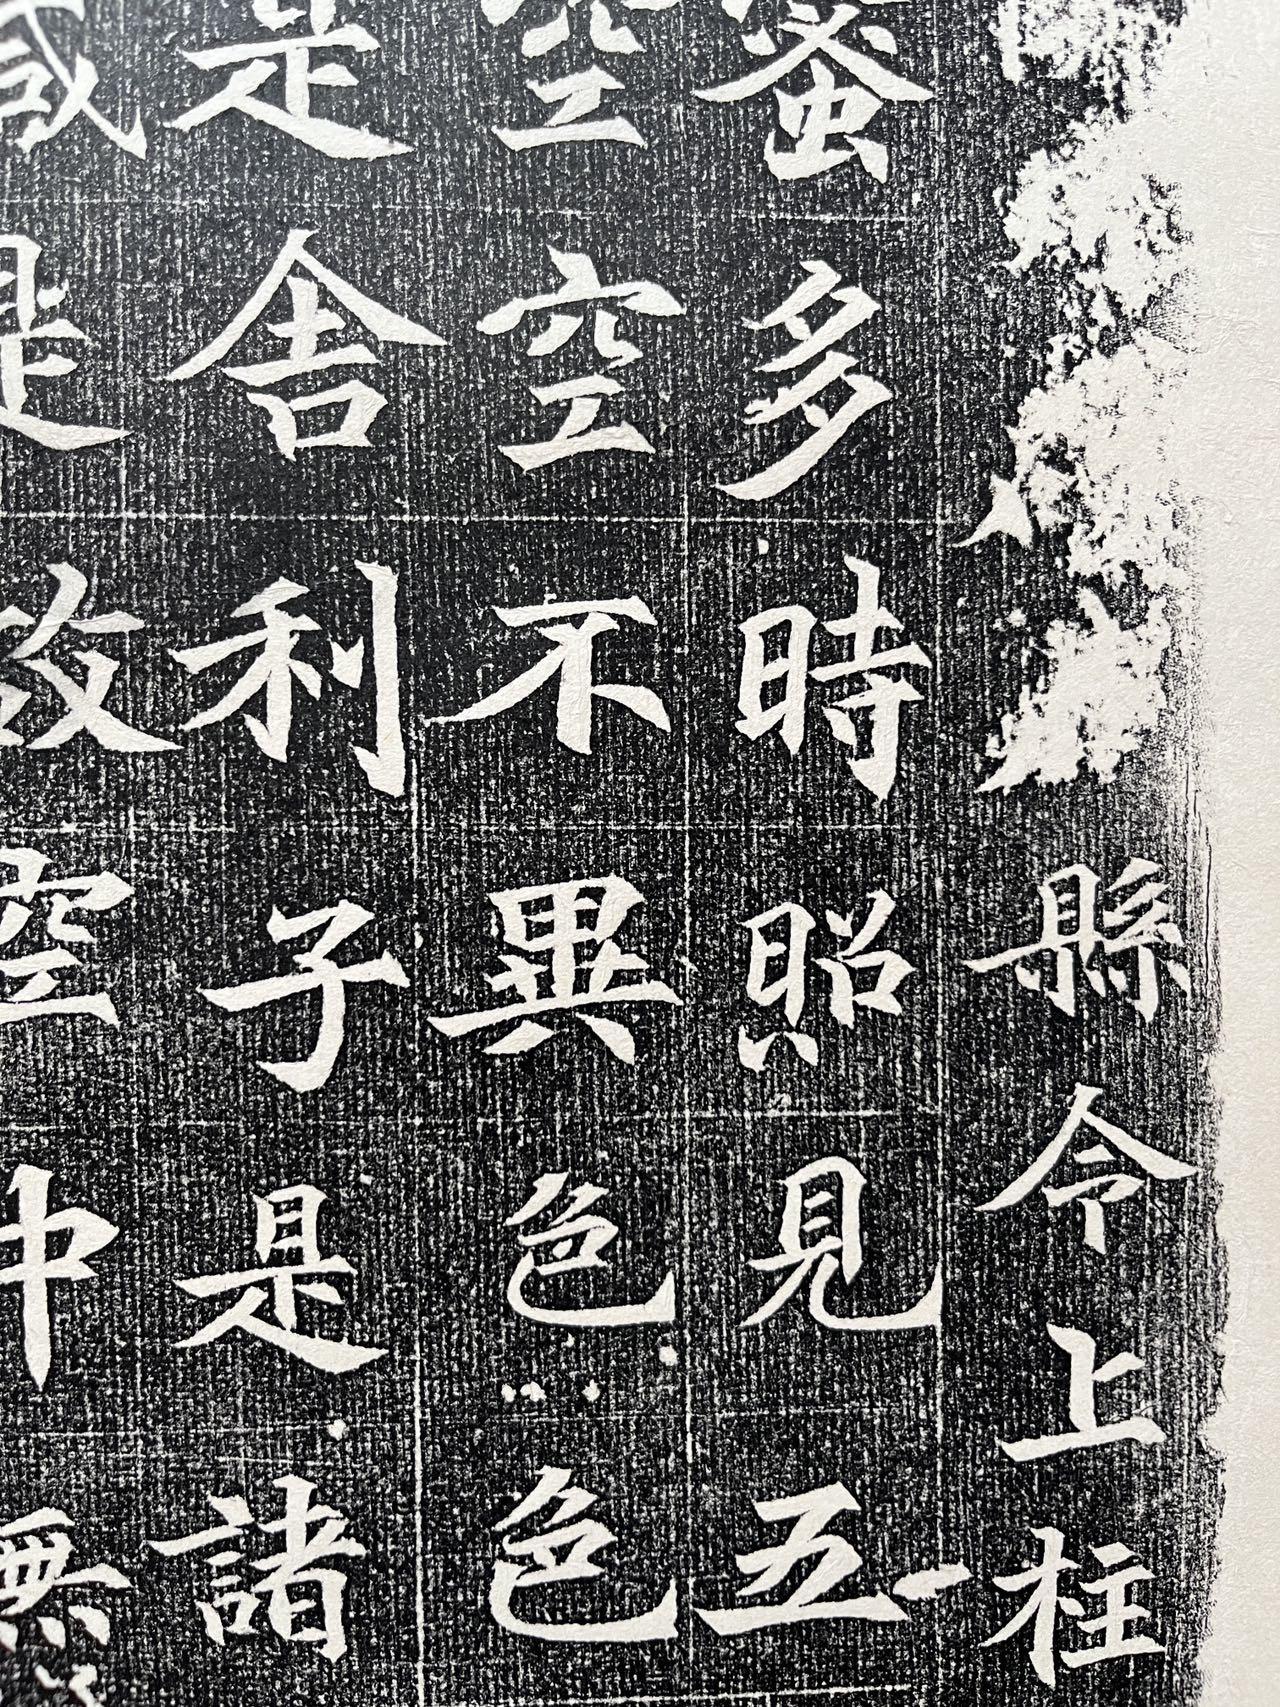 縣令上柱
蜜多時照見五
空空不異色色
是舍利子是諸
減是故空中無